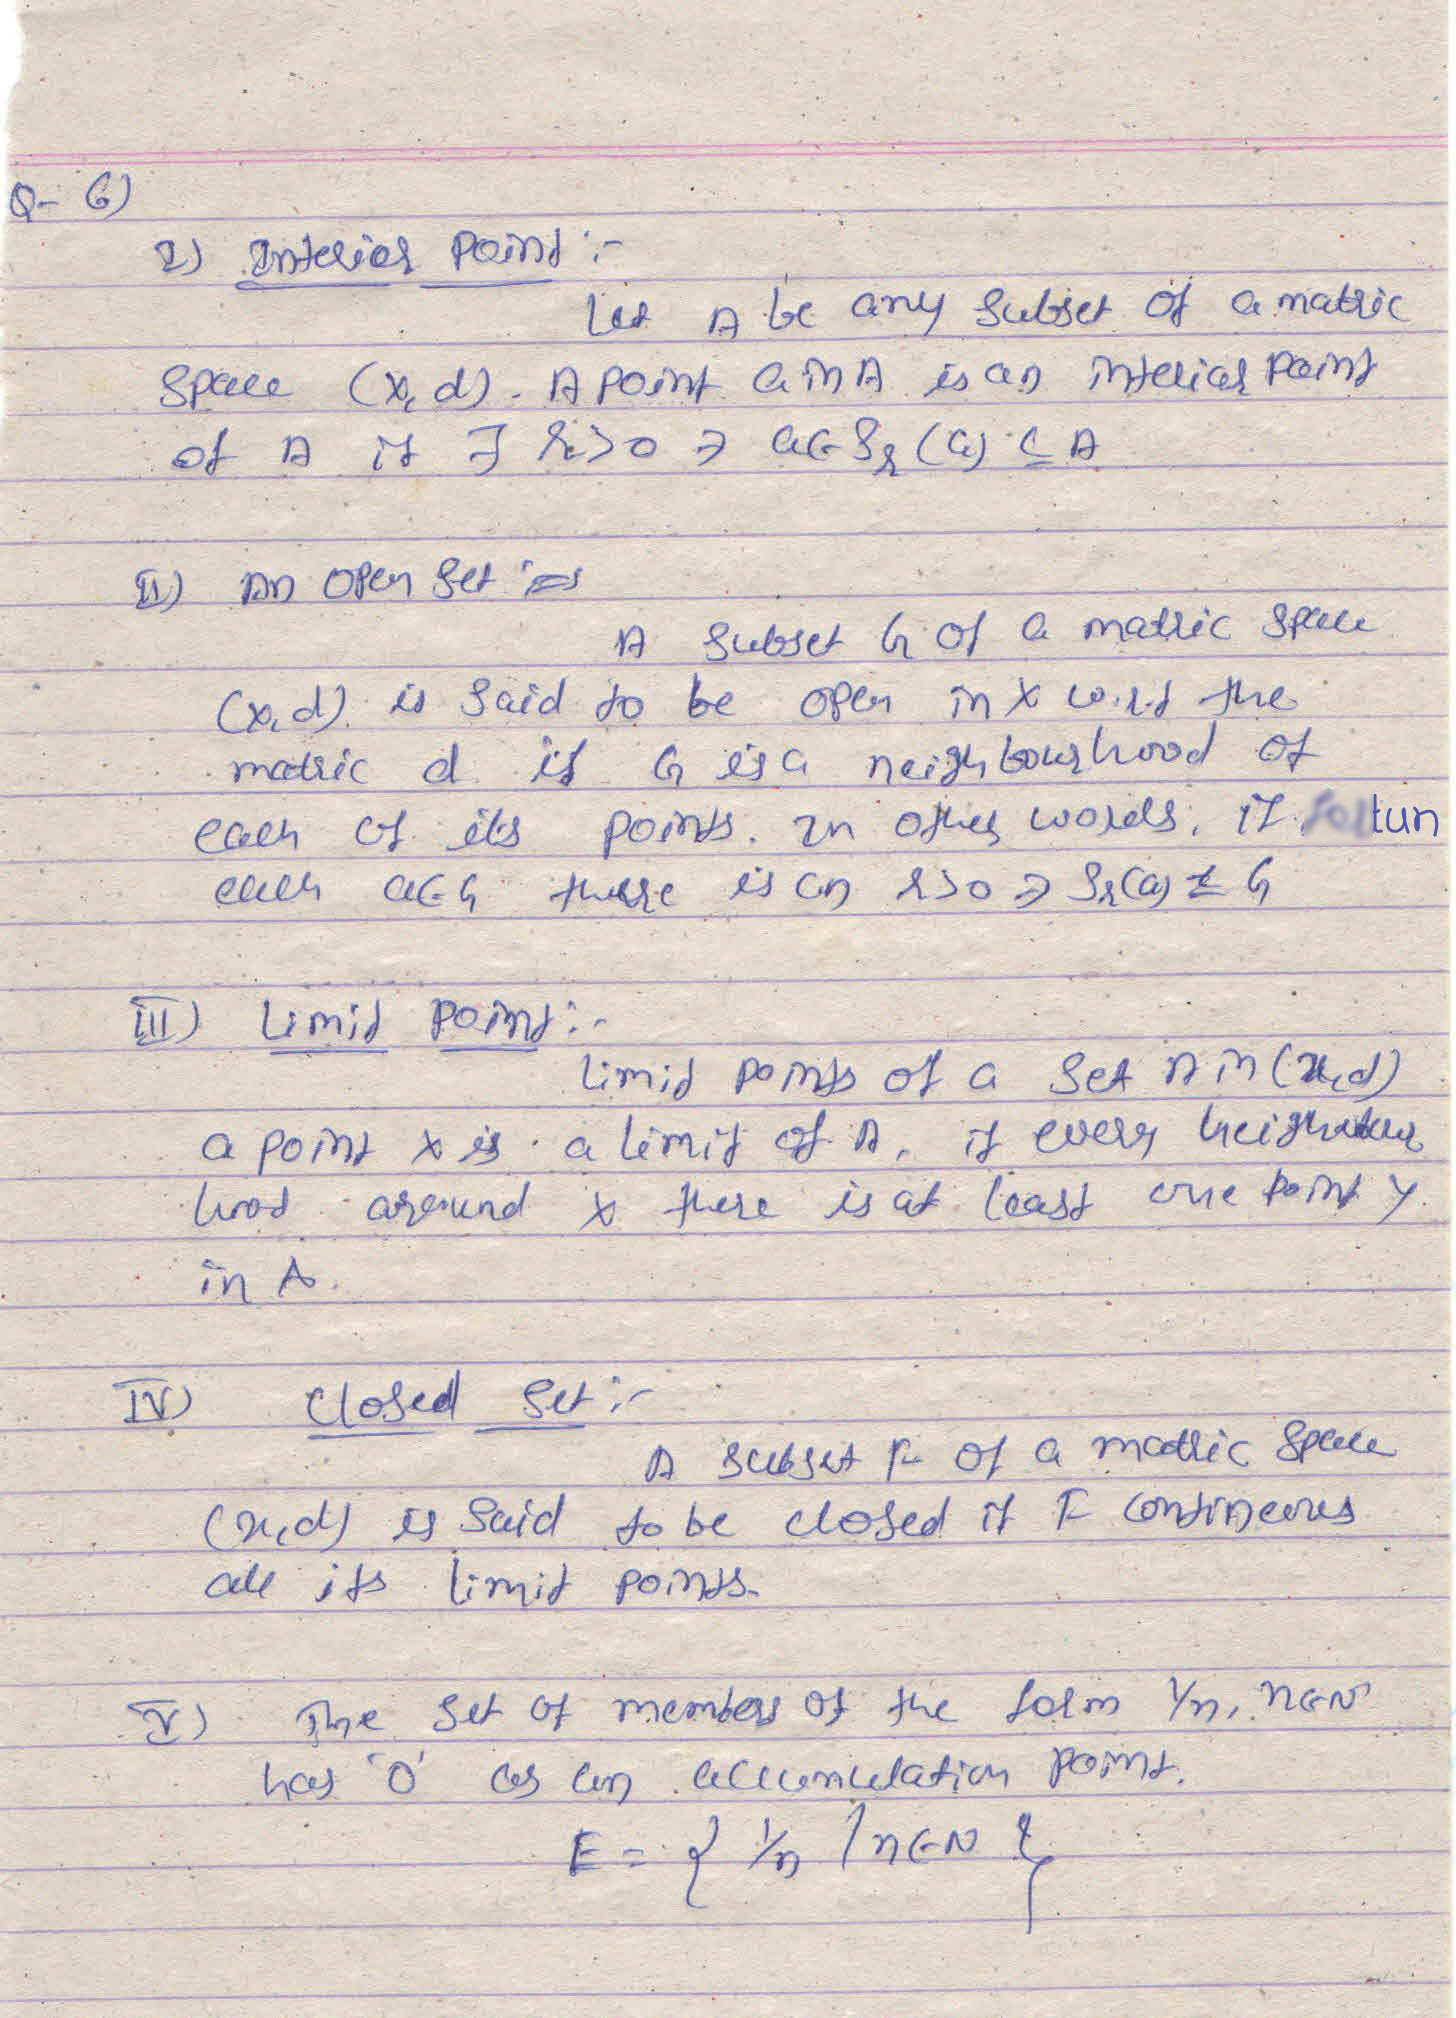 Q- 6)
I) Interior Point :-
Let A be any subset of a matric
space (x, d). A point a in A is an interior point
of A if ∃ r>0 ∋ a∈Sr(a) ⊆ A
II) An open set :-
A subset G of a matric space
(x, d) is said to be open in X w.r.t the
matric d if G is a neighbourhood of
each of its points. In other words, if tun
each a∈G there is an r>0 ∋ Sr(a) ⊆ G
III) Limit Point :-
Limit points of a set A in (x, d)
a point x is a limit of A, if every neighbour
hood around x there is at least one point y
in A.
IV) Closed Set :-
A subset F of a matric space
(x, d) is said to be closed if F contineous
all its limit points.
V) The set of members of the form 1/n, n∈N
has '0' as an accumulation point.
E = { 1/n / n∈N }